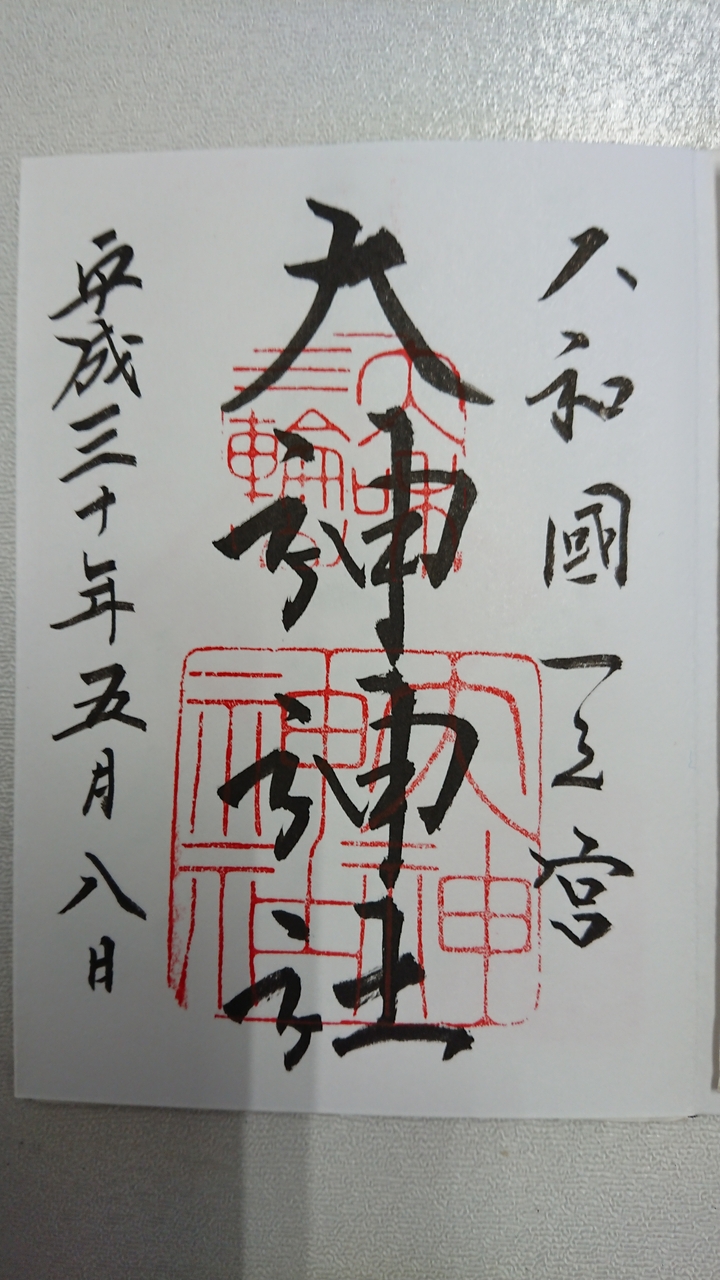 大和國一之宮
大神神社
平成三十年五月八日
大和
三輪
大神
神社